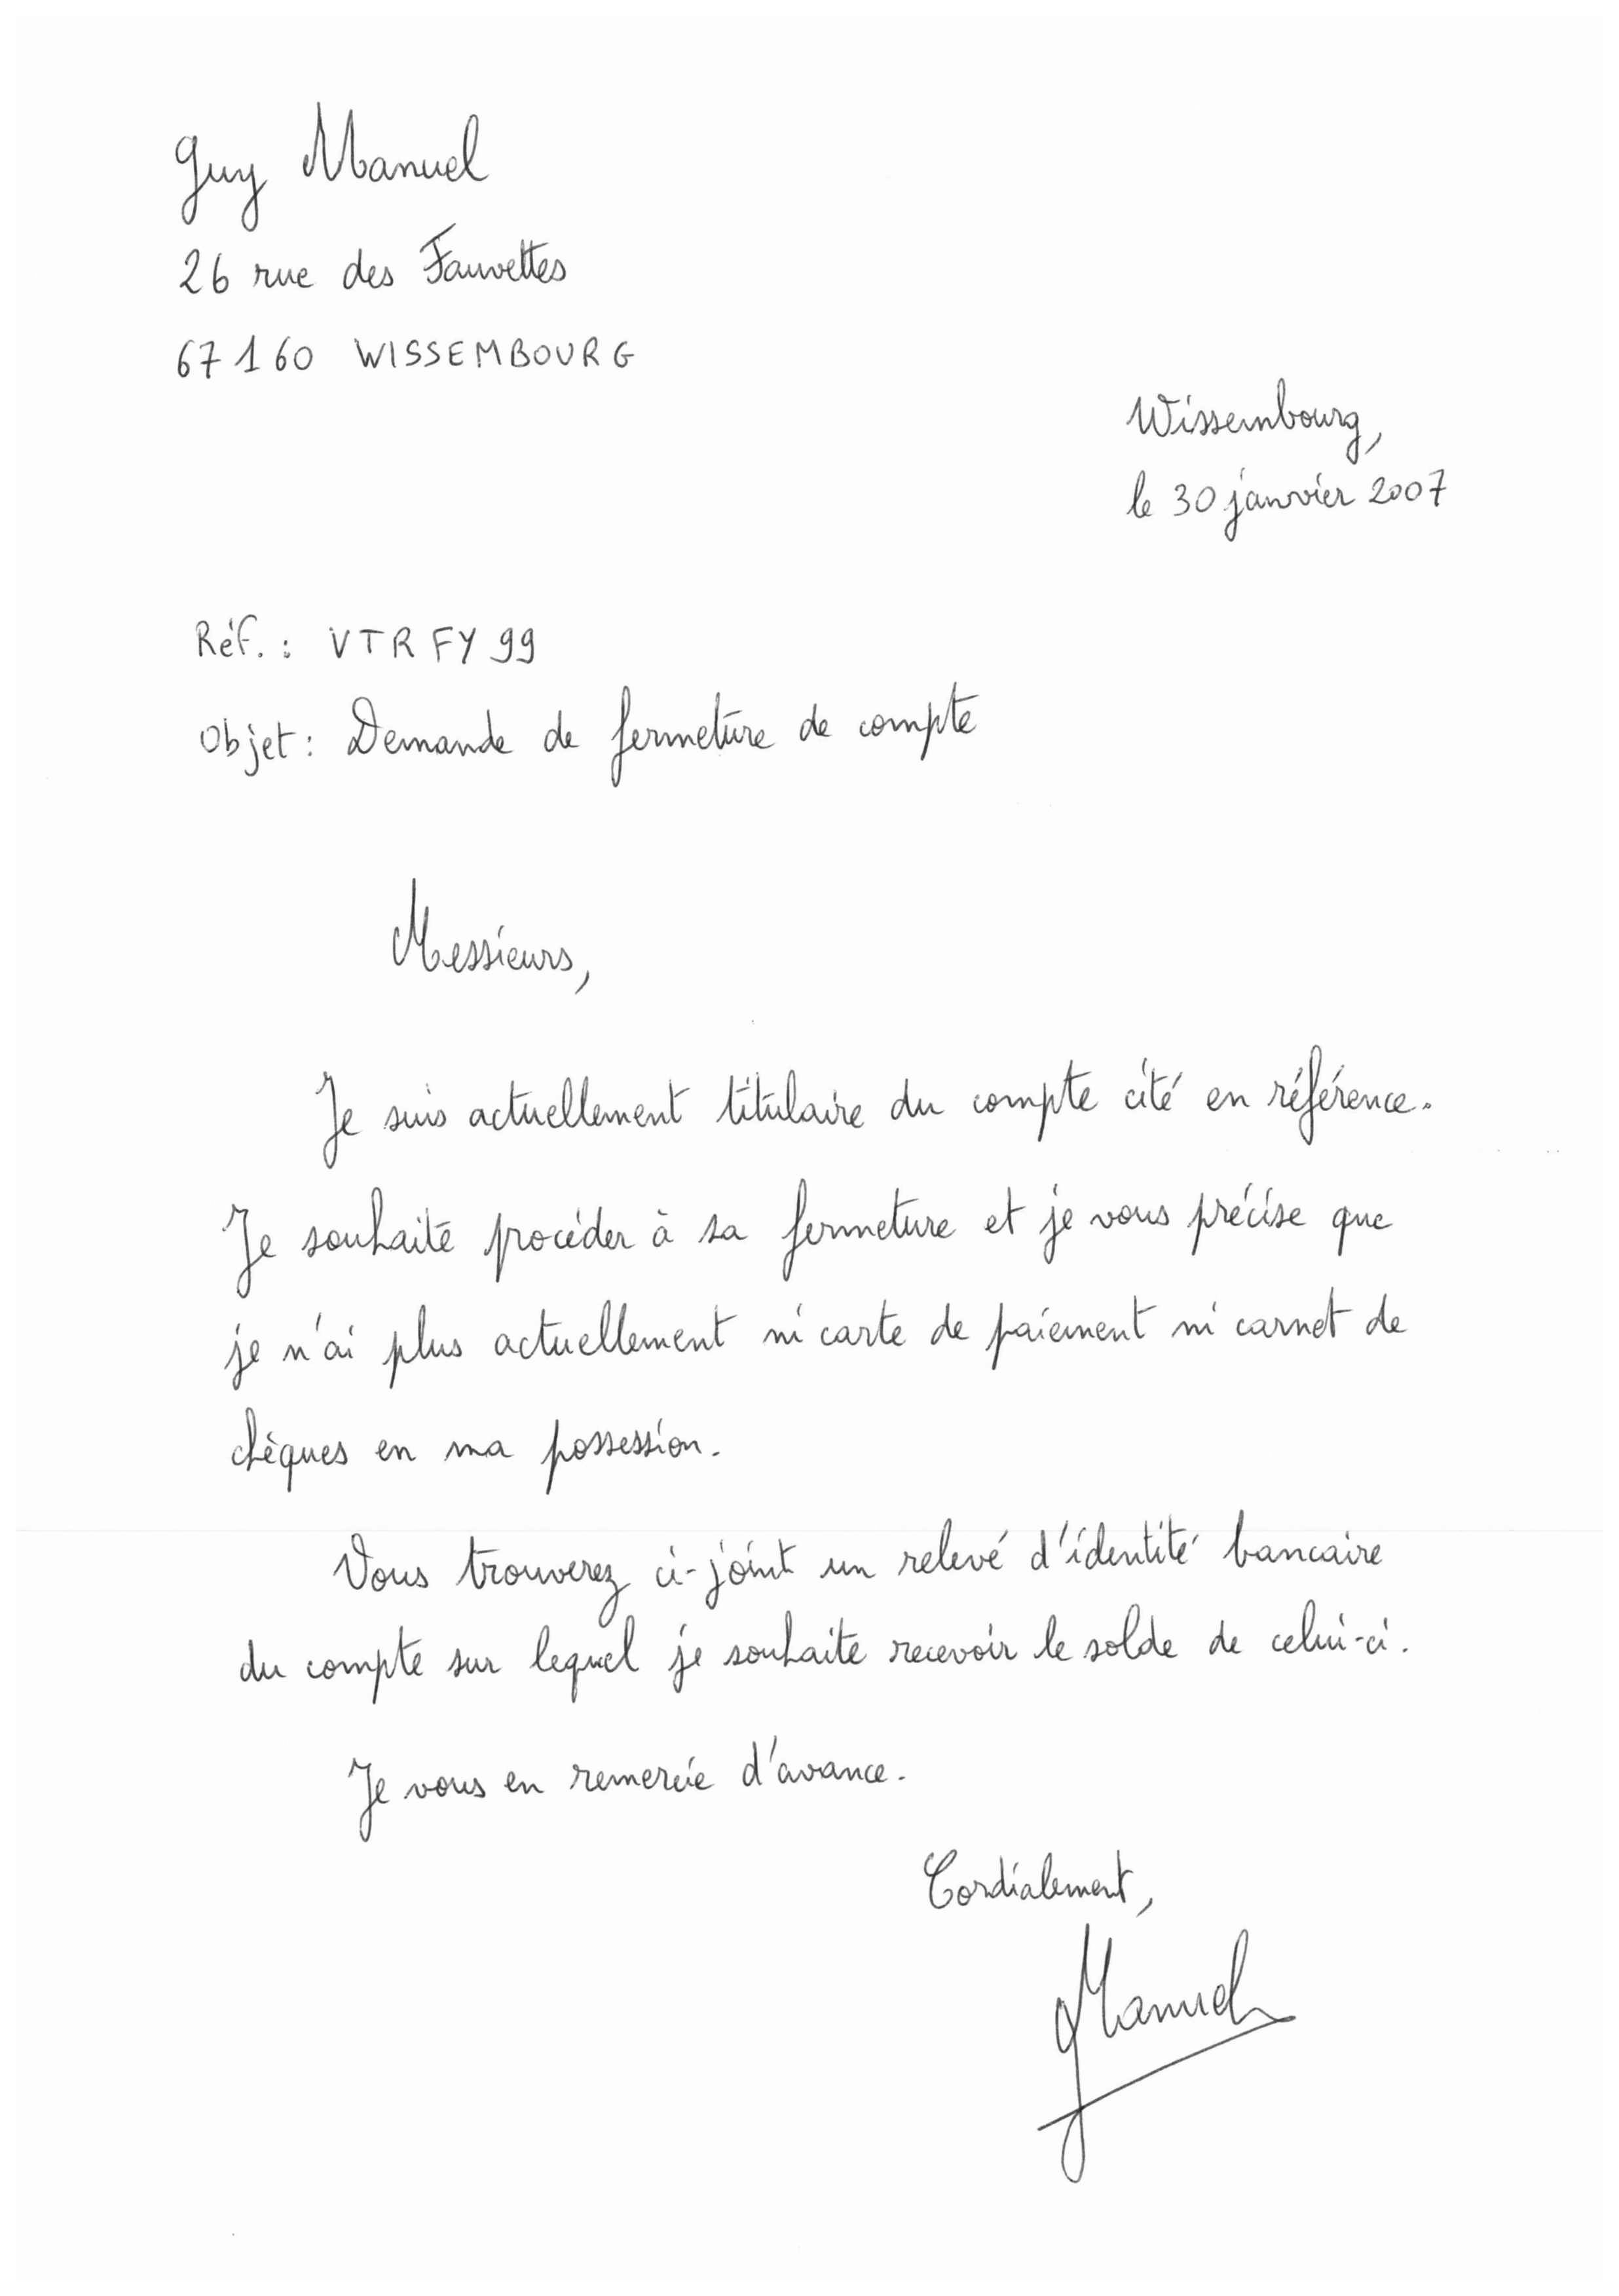 Guy Manuel
26 rue des Fauvettes
67160 WISSEMBOURG
Wissembourg,
le 30 janvier 2007
Réf. : VTRFY99
Objet : Demande de fermeture de compte
Messieurs,
Je suis actuellement titulaire du compte cité en référence.
Je souhaite procéder à sa fermeture et je vous précise que
je n'ai plus actuellement ni carte de paiement ni carnet de
chèques en ma possession.
Vous trouverez ci-joint un relevé d'identité bancaire
du compte sur lequel je souhaite recevoir le solde de celui-ci.
Je vous en remercie d'avance.
Cordialement,
Manuel